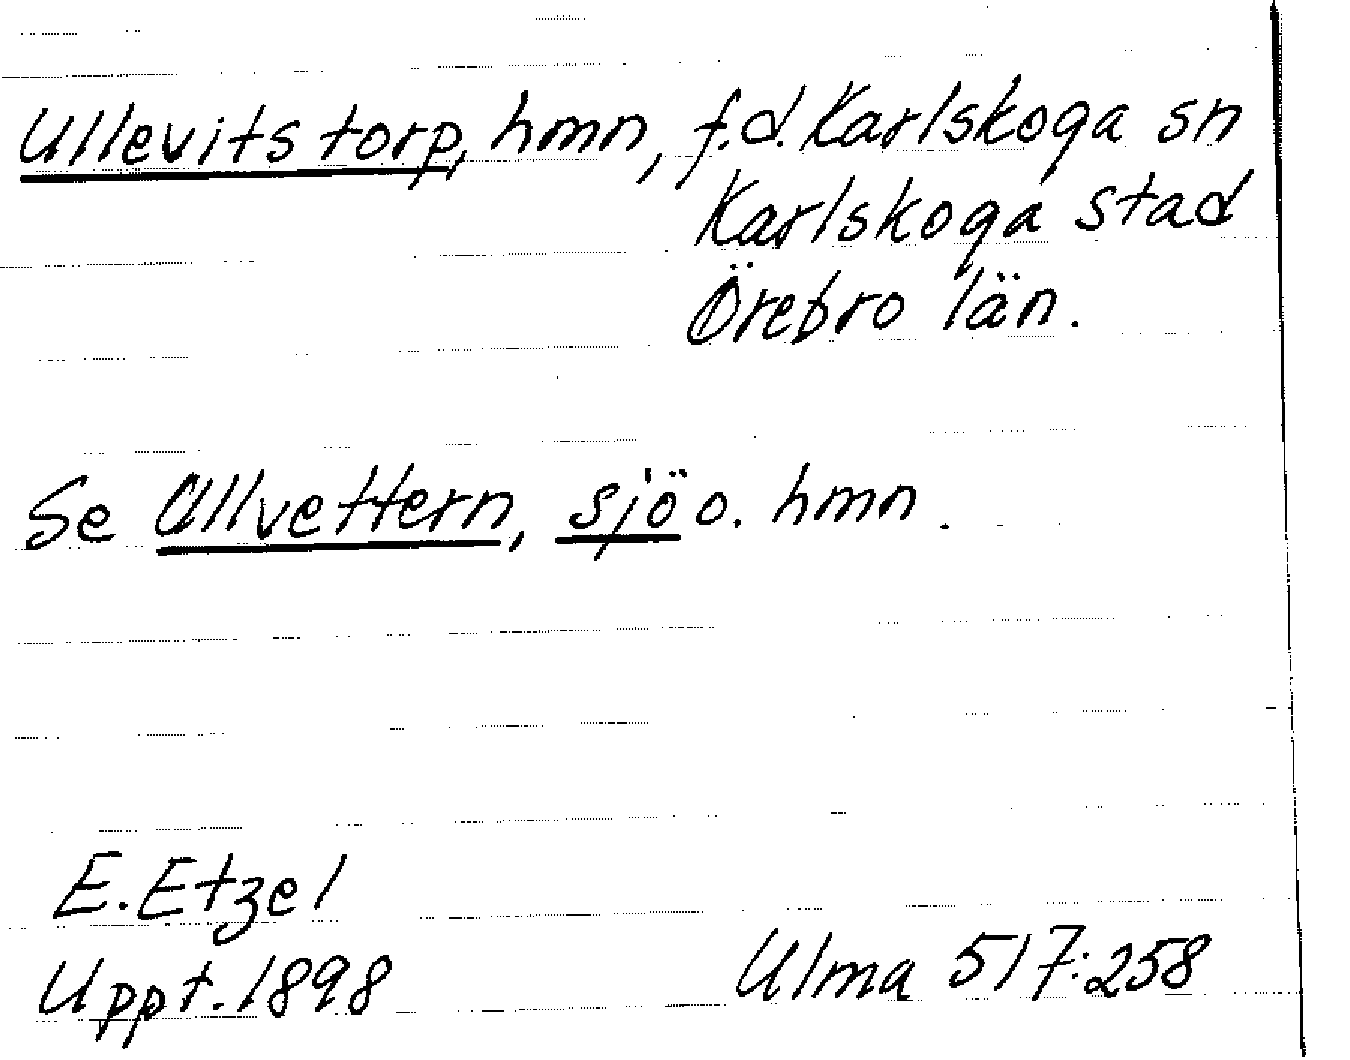 Ullevitstorp, hmn, f.d. Karlskoga sn
Karlskoga stad
Örebro län.
Se Ullvettern, sjö o. hmn.
E. Etzel
Uppt. 1898
Ulma 517:258